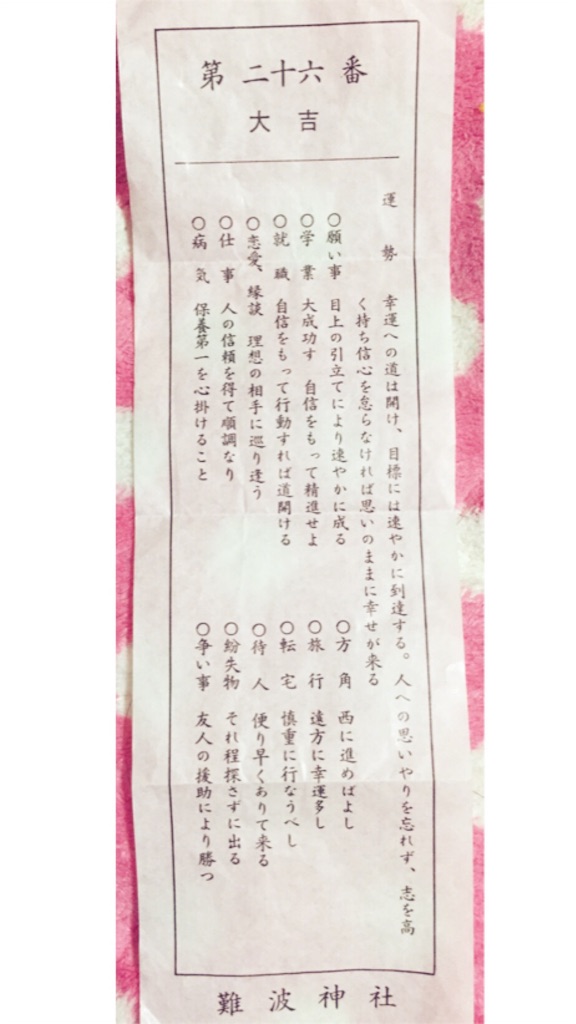 第二十六番
大吉
運勢 幸運への道は開け、目標には速やかに到達する。人への思いやりを忘れず、志を高
く持ち信心を怠らなければ思いのままに幸せが来る
○願い事 目上の引立てにより速やかに成る
○学業 大成功す 自信をもって精進せよ
○就職 自信をもって行動すれば道開ける
○恋愛、縁談 理想の相手に巡り逢う
○仕事 人の信頼を得て順調なり
○病気 保養第一を心掛けること
○方角 西に進めばよし
○旅行 遠方に幸運多し
○転宅 慎重に行なうべし
○待人 便り早くありて来る
○紛失物 それ程探さずに出る
○争い事 友人の援助により勝つ
難波神社